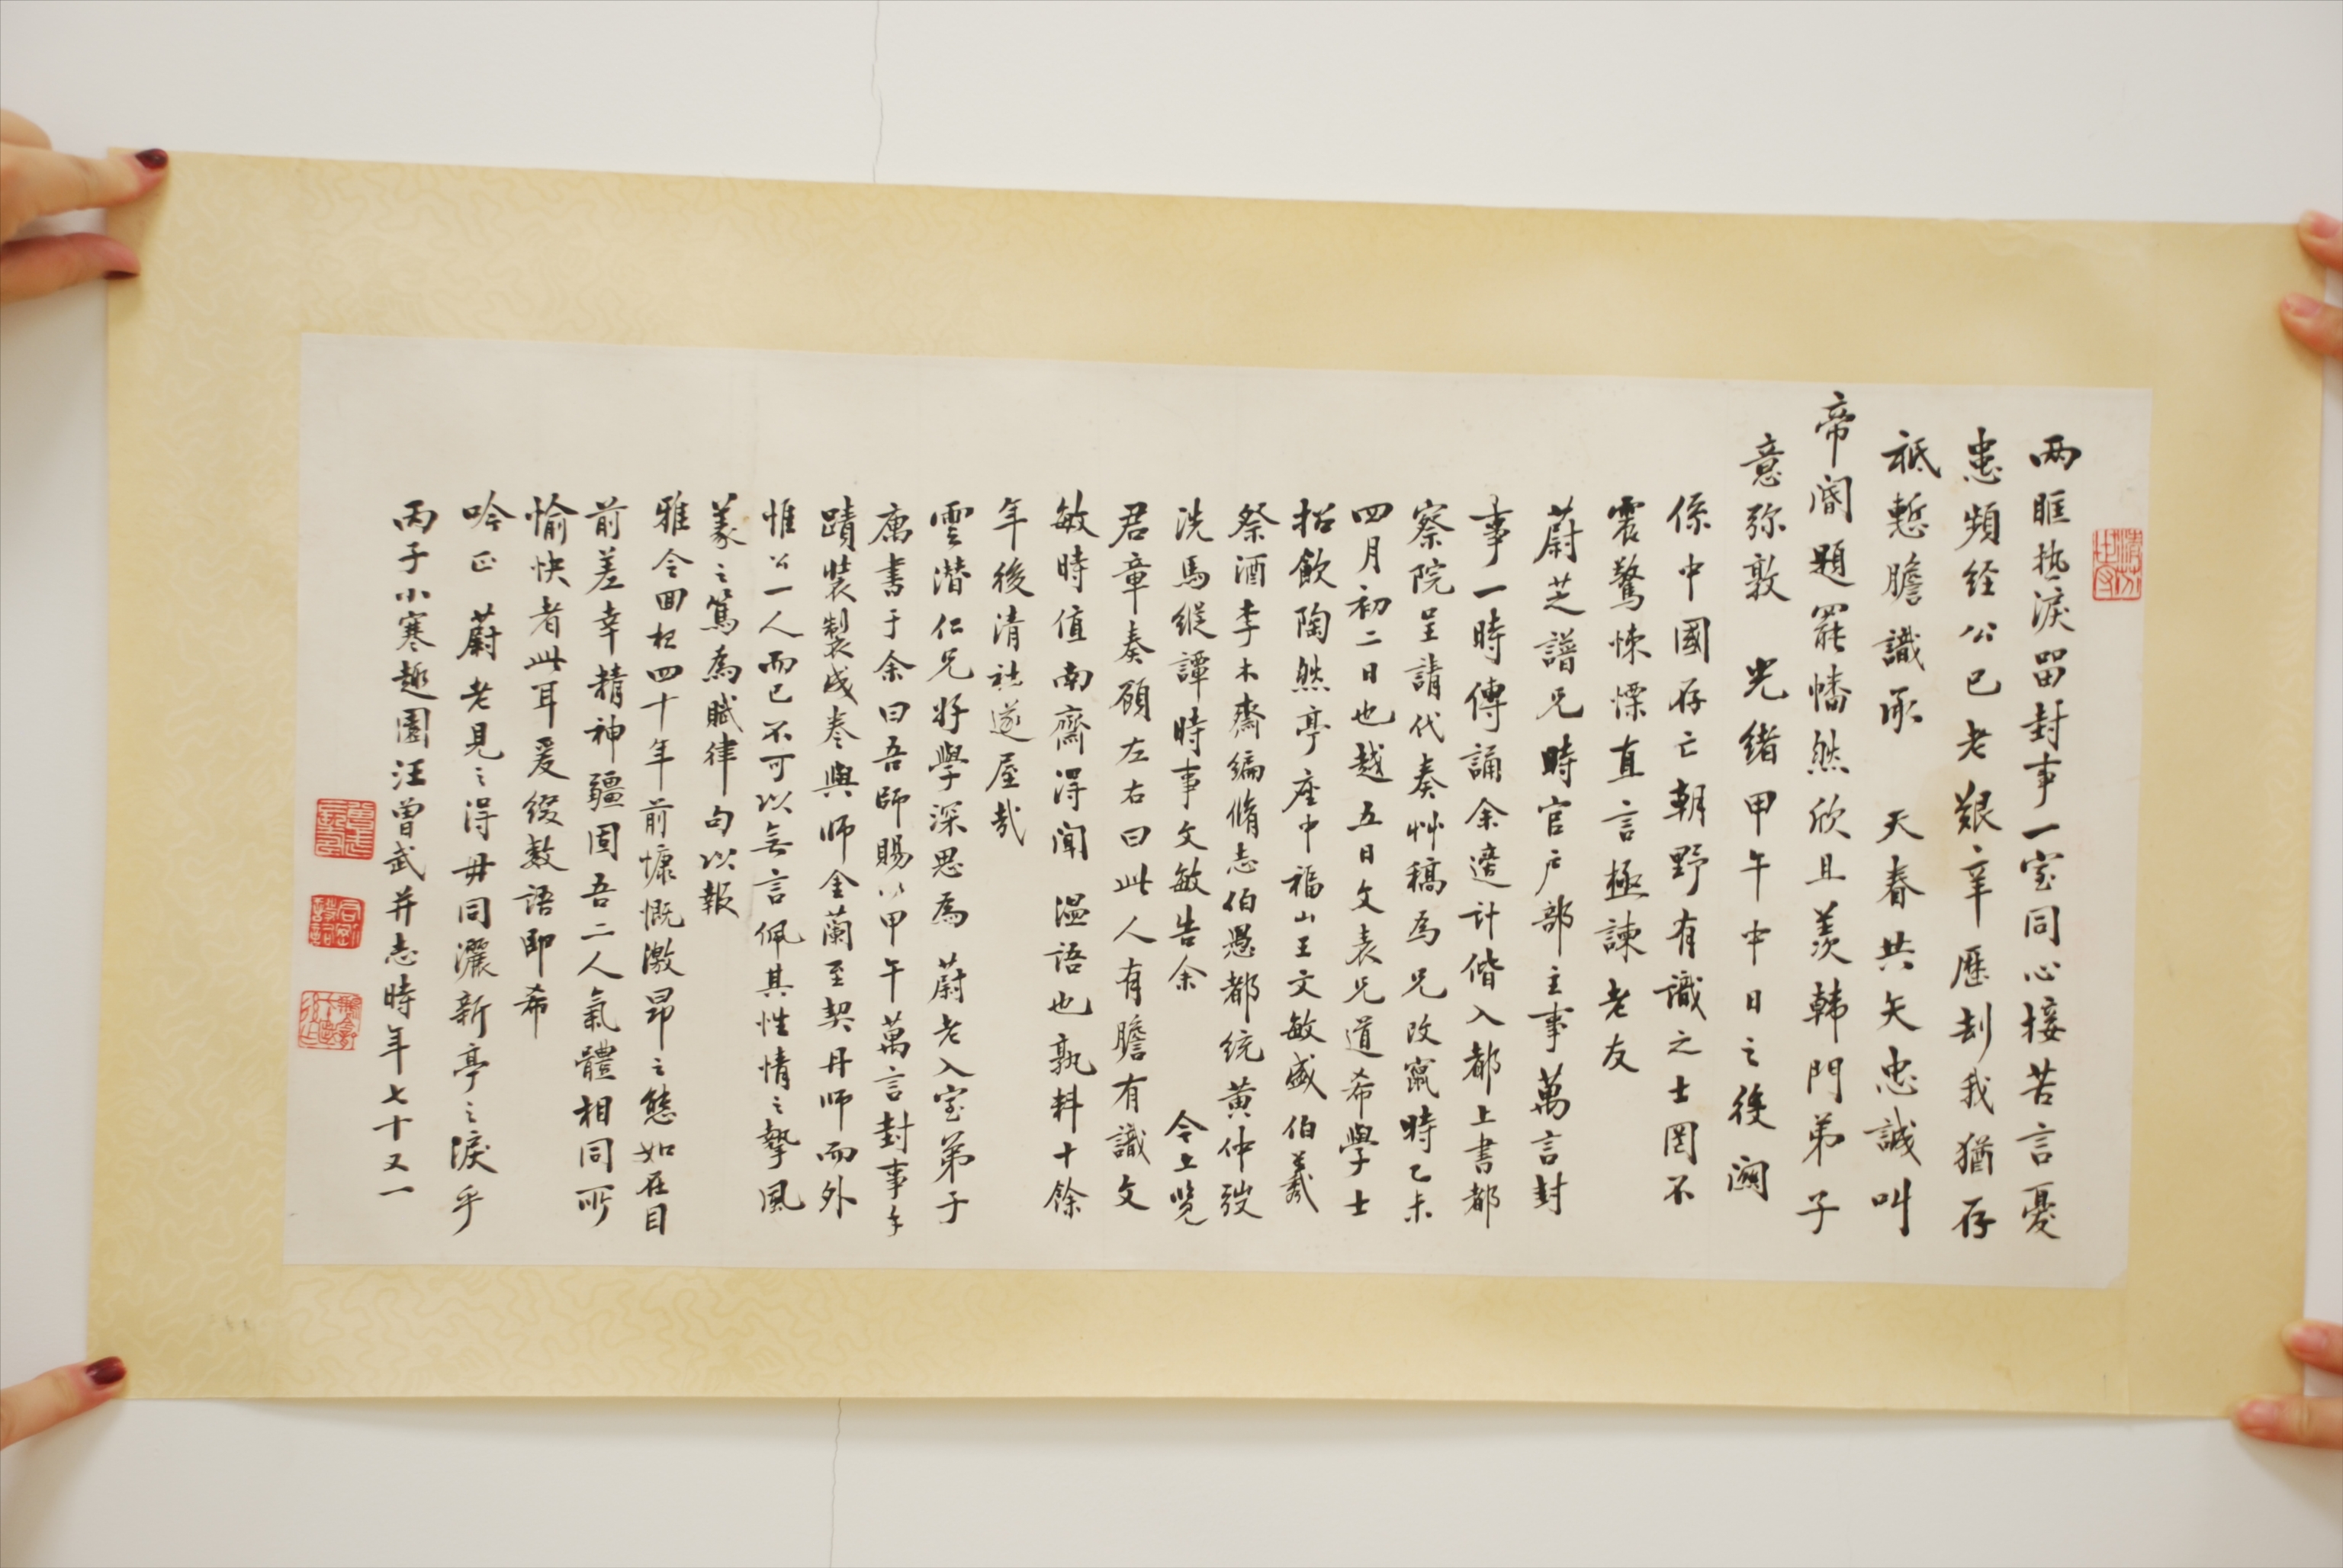 两眶热淚留封事一室同心接苦言憂
患頻经公已老艱辛歷刦我猶存
祗慙膽識承 天眷共矢忠誠叫
帝閽題罷幡然欣且羨韩門弟子
意弥敦 光緒甲午中日之役溯
係中國存亡朝野有識之士罔不
震驚悚慄直言極諫老友
蔚芝譜兄時官户部主事萬言封
事一時傳誦余適计偕入都上書都
察院呈請代奏艸稿為兄改竄時乙未
四月初二日也越五日文表兄道希學士
招飲陶然亭座中福山王文敏盛伯羲
祭酒李木齋编脩志伯愚都统黄仲弢
洗馬縱譚時事文敏告余 今上览
君章奏顧左右曰此人有膽有識文
敏時值南齋得闻 溫语也孰料十餘
年後清社遂屋哉
雲潜仁兄好學深思為 蔚老入室弟子
唐書于余曰吾師賜以甲午萬言封事手
蹟裝製成卷與师金蘭至契丹师而外
惟公一人而已不可以無言佩其性情之摯風
義之篤為賦律句以報
雅令回松四十年前慷慨激昂之態如在目
前差幸精神疆固吾二人氣體相同所
愉快者此耳爰缀數语即希
吟正 蔚老見之得毋同灑新亭之淚乎
丙子小寒趣園汪曾武并志時年七十又一